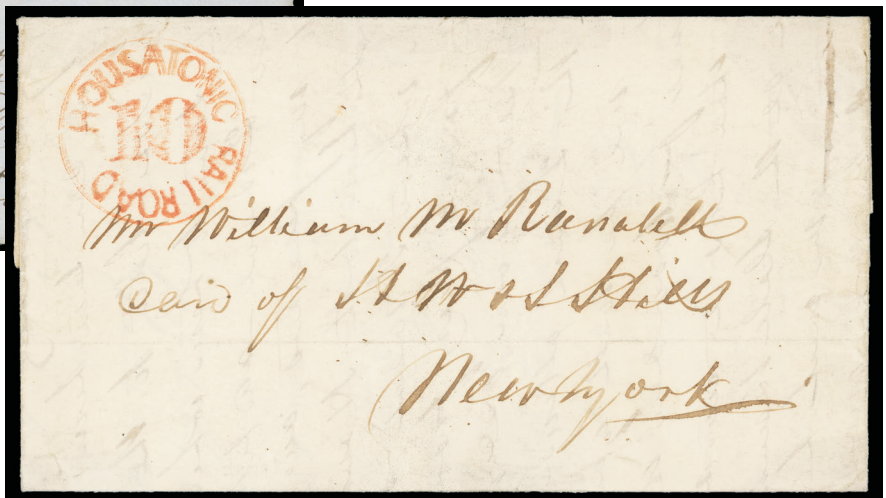 HOUSATONIC RAILROAD
10
Mr William M Randell
Care of H W & S Hills
New York